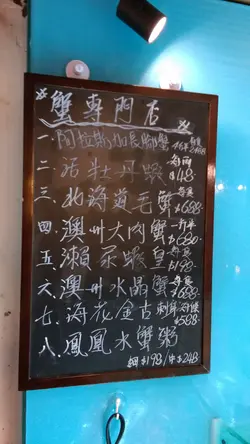 蟹專門店
一、阿拉斯加長腳蟹
二、活牡丹蝦 每両 $48-
三、北海道毛蟹 每隻 $688-
四、澳州大肉蟹 一斤半 $680-
五、瀨尿蝦皇 每隻 $198-
六、澳州水晶蟹 每隻 $688-
七、海花金古 刺身 $588-
八、鳳凰水蟹粥
細$198/中$248